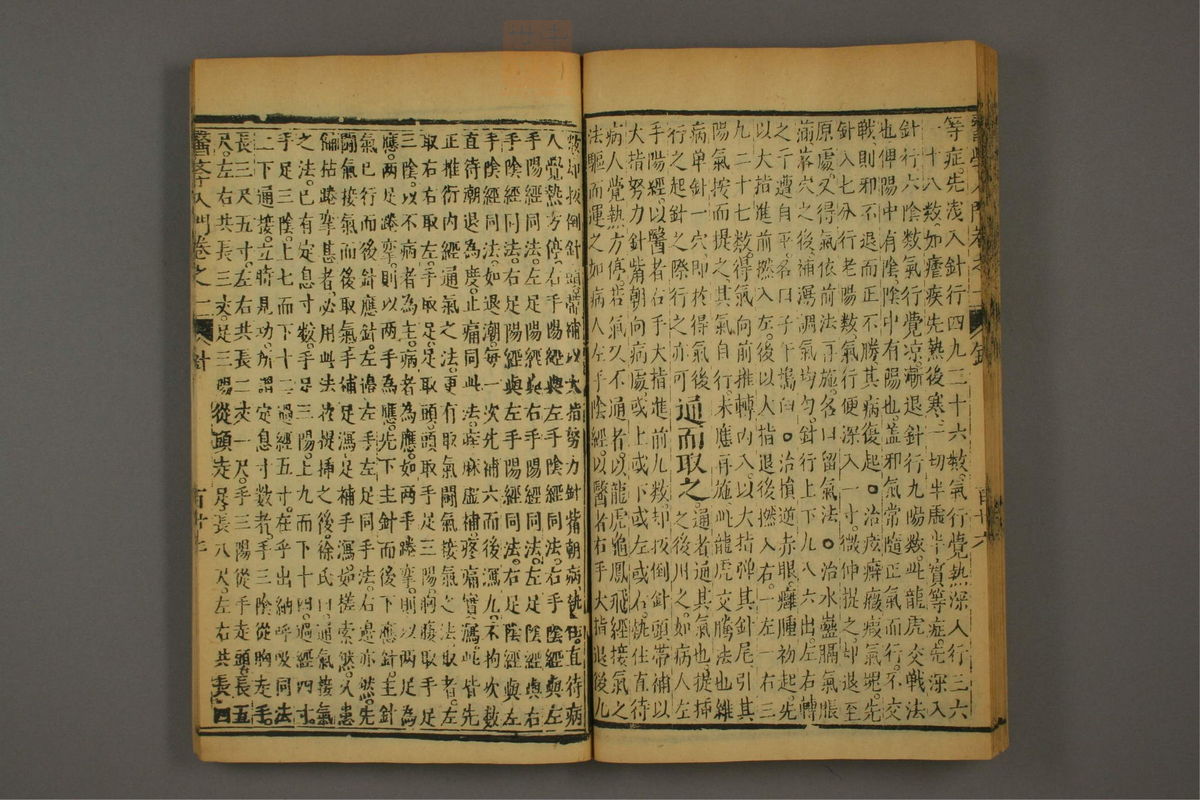 醫學入門卷之一 針 百廿六
等症。先淺入針行四九三十六數。氣行覺熱深入行三六
一十八數。如瘧疾先熱後寒。一切半虛半實等症。先深入
針行六陰數氣行覺凉漸退針行九陽數此龍虎交戰法
也俾陽中有陰陰中有陽也。蓋邪氣常隨正氣而行。不交
戰則邪不退而正不勝其病復起○治痃癖癥瘕氣塊。先
針入七分行老陽數氣行便深入一寸。微伸提之却退至
原處。又得氣依前法再施。名曰留氣法。○治水蠱膈氣脹
滿落穴之後補瀉調氣均勻。針行上下九入六出。左右轉
之千遭自平。名曰子午搗臼。○治損逆赤眼。癰腫初起。先
以大指進前撚入左。後以大指退後撚入右。一左一右三
九二十七數。得氣向前推轉內入。以大指彈其針尾引其
陽氣按而提之。其氣自行未應再施此龍虎交騰法也雖
病单針一穴。即於得氣後
行之起針之際行之亦可
通而取之。
通者通其氣也。提插
之後用之。如病人左
手陽經。以醫者右手大指進前九數。却扳倒針頭帶補以
大指努力針觜朝向病處。或上或下或左或右。執住直待
病人覺熱方停。若氣又不通者。以龍虎龜鳳飛經接氣之
法驅而運之。如病人左手陰經。以醫者右手大指退後九
數却扳倒針頭。帶補以大指努力針觜朝病。執住。直待病
人覺熱方停。右手陽經與左手陰經同法。右手陰經與左
手陽經同法。左足陽經與右手陽經同法。左足陰經與右
手陰經同法。右足陽經與左手陽經同法。右足陰經與左
手陰經同法。如退潮。每一次先補六而後瀉九。不拘次數
直待潮退為度。止痛同此法。痒麻虛補。疼痛實瀉此皆先
正推衍內經通氣之法。更有取氣闘氣接氣之法取者。左
取右右取左。手取足。足取頭。頭取手足三陽。胸腹取手足
三陰。以不病者為主。病者為應。如兩手踡攣。則以兩足為
應。兩足踡攣。則以兩手為應。先下主針而後下應針主針
氣已行而後針應針。左邊左手左足同手法。右邊亦然。先
闘氣接氣而後取氣。手補足瀉足補手瀉。如搓索然。久患
偏枯踡攣甚者。必用此法於提插之後。徐氏曰。通氣接氣
之法。已有定息寸數。手足三陽。上九而下十四。過經四寸。
手足三陰。上七而下十二過經五寸。在乎出納呼吸同法。
二下通接。立時見功。所謂定息寸數者。手三陰從胸走手。
長三尺五寸。左右共長二丈一尺。手三陽從手走頭長五
尺。左右共長三丈。足三陽從頭走足長八尺。左右共長四
醫學入門卷之一 針 百廿七